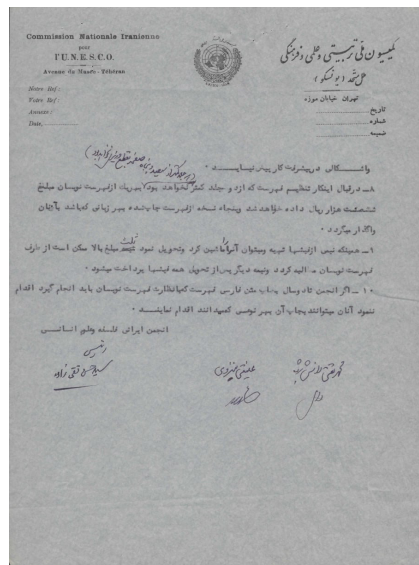 Commission Nationale Iranienne
pour
l'U.N.E.S.C.O.
Avenue du Musée - Téhéran
Notre Réf:
Votre Réf:
Annexe:
Date,
کمیسیون ملی تربیتی و علمی و فرهنگی
ملل متحد (یونسکو)
تهران خیابان موزه
تاریخ
شماره
ضمیمه
و اشکالی در پیشرفت کار پیش نیاید ۰
۸ــ در قبال اینکار تنظیم فهرست که از دو جلد کمتر نخواهد بود بهریک از فهرست نویسان مبلغ
شصت هزار ریال داده خواهد شد و پنجاه نسخه از فهرست چاپ شده بهر زبانی که باشد بآنان
واگذار میگردد ۰
۹ــ همینکه نیمی از فیشها تهیه و میتوان آنرا تأمین کرد و تحویل نمود ثلث مبلغ بالا ممکن است از طرف
فهرست نویسان مطالبه گردد و نیمه دیگر پس از تحویل همه فیشها پرداخت میشود ۰
۱۰ــ اگر انجمن تا دو سال بچاپ متن فارسی فهرست که با نظارت فهرست نویسان باید انجام گیرد اقدام
ننمود آنان میتوانند بچاپ آن بهر نوعی که میدانند اقدام نمایند ۰
انجمن ایرانی فلسفه و علوم انسانی
رئیس
سید حسن تقی زاده
علینقی منزوی
محمد تقی دانش پژوه